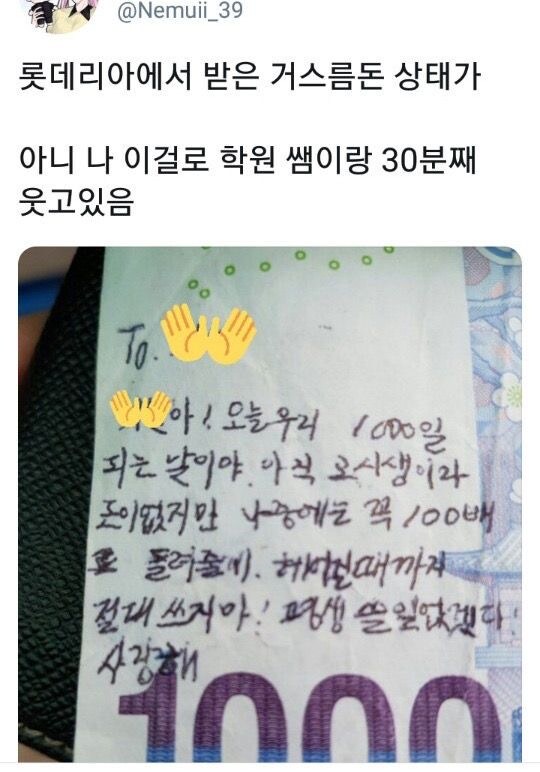 @Nemuii_39
롯데리아에서 받은 거스름돈 상태가
아니 나 이걸로 학원 쌤이랑 30분째
웃고있음
To.
아! 오늘우리 1000일
되는 날이야. 아직 고시생이라
돈이없지만 나중에는 꼭 100배
로 돌려줄게. 헤어질때까지
절대 쓰지마! 평생 쓸일없겠다!
사랑해
1000